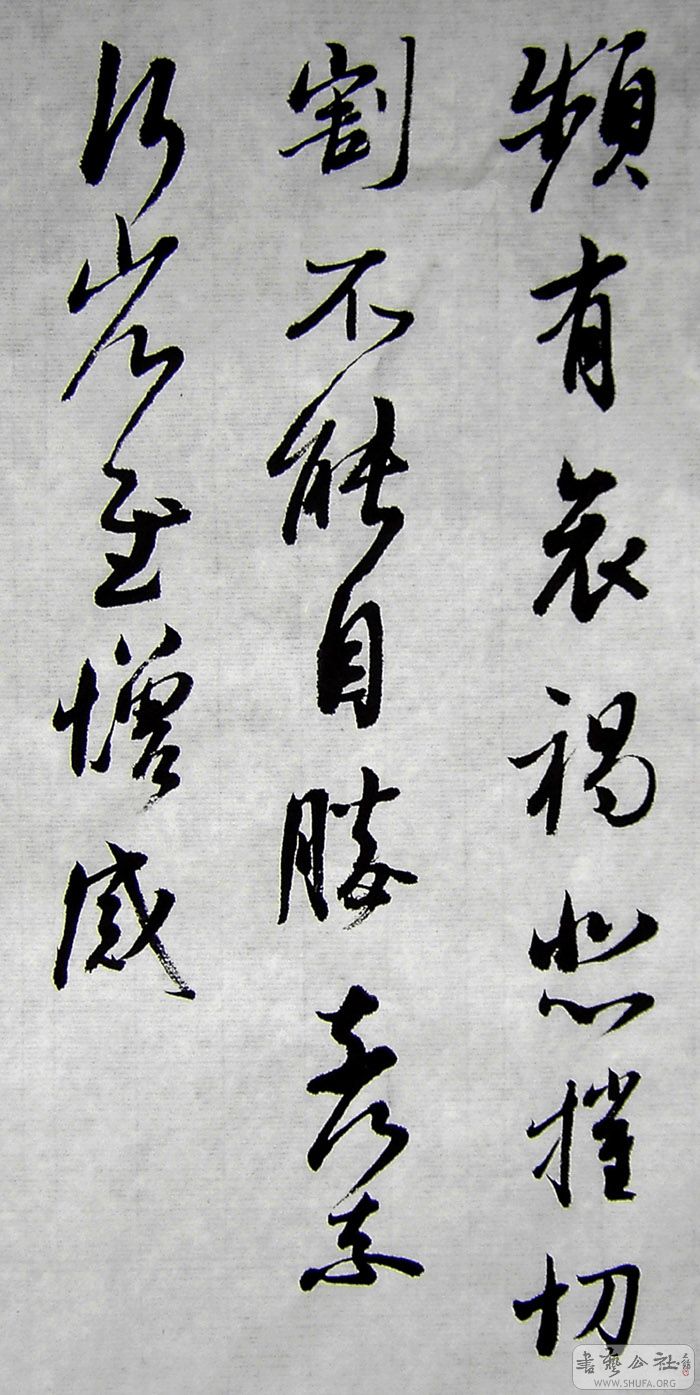 頻有哀禍悲摧切
割不能自勝奈何奈
何省慰增感
書藝公社
WWW.SHUFA.ORG